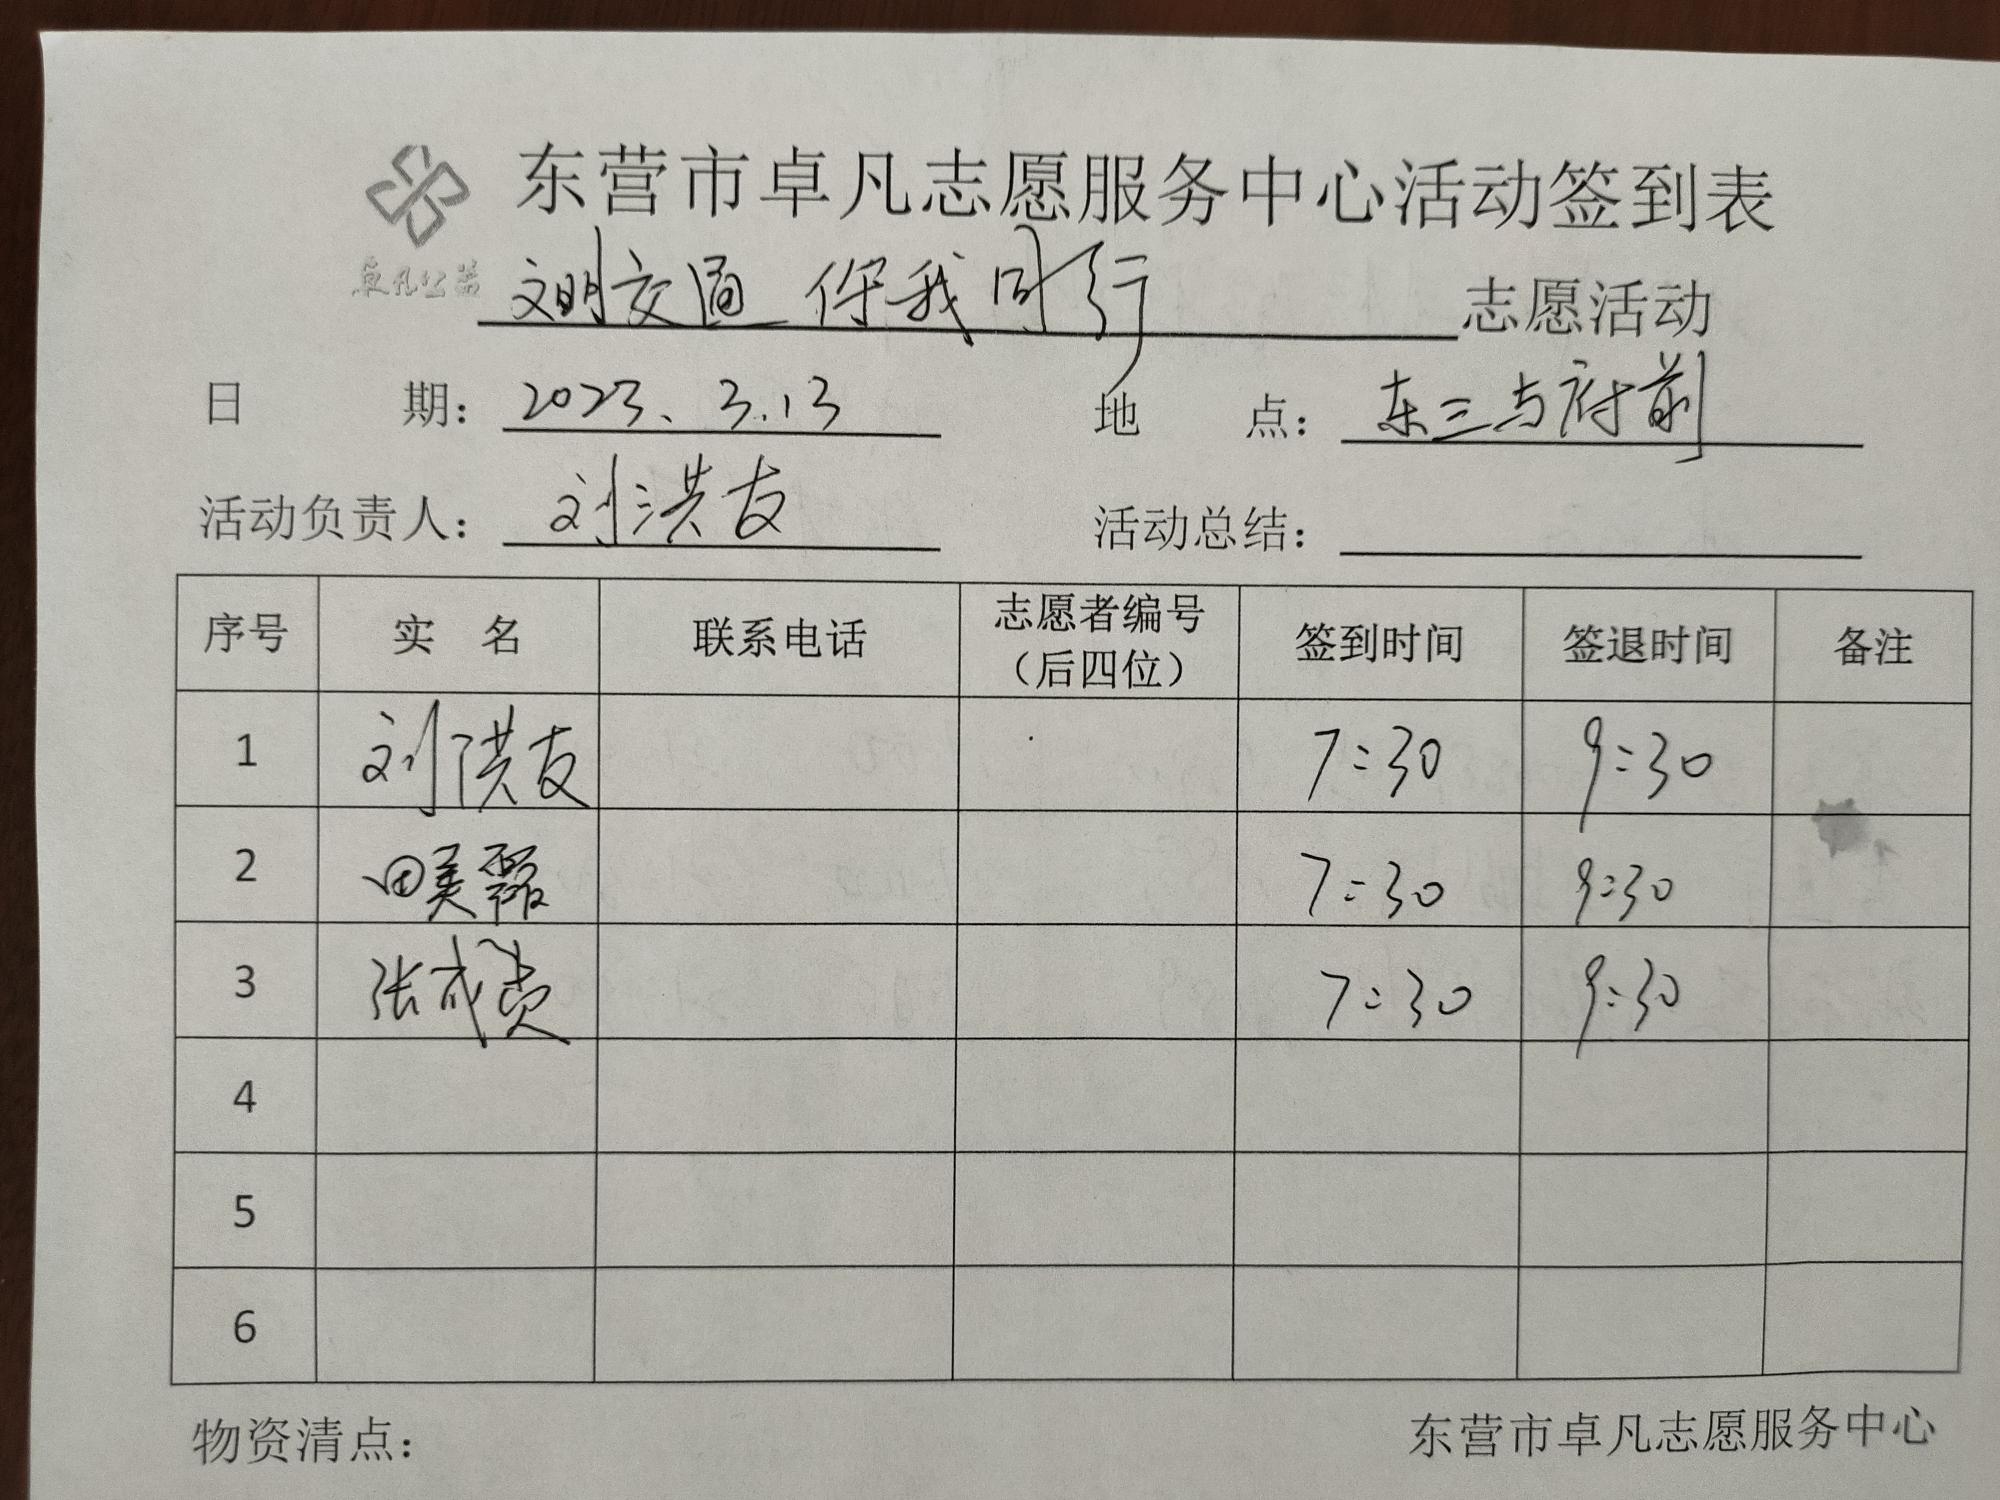 东营市卓凡志愿服务中心活动签到表
卓凡公益
文明交通 你我同行 志愿活动
日 期： 2023、3.13 地 点： 东三与府前
活动负责人： 刘洪友 活动总结：
序号 实 名 联系电话 志愿者编号（后四位） 签到时间 签退时间 备注
1 刘洪友 7:30 9:30
2 田美霞 7:30 9:30
3 张成贵 7:30 9:30
4
5
6
物资清点： 东营市卓凡志愿服务中心